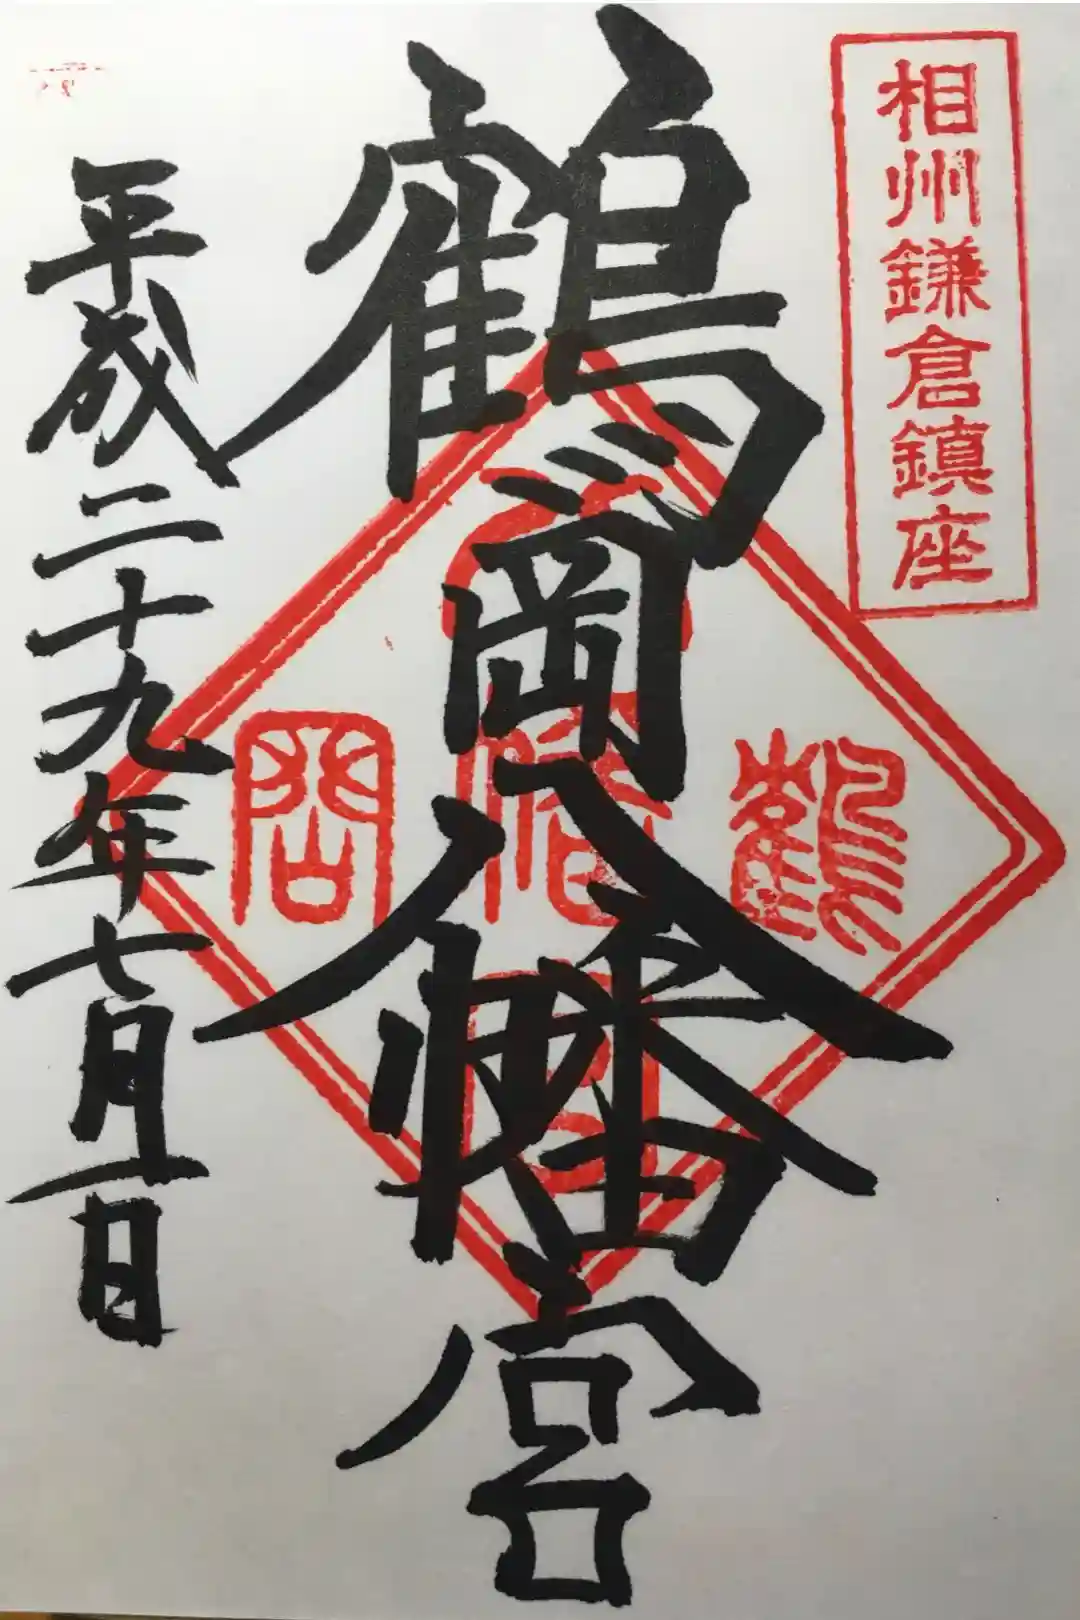 相州鎌倉鎮座
鶴岡八幡宮
平成二十九年七月一日